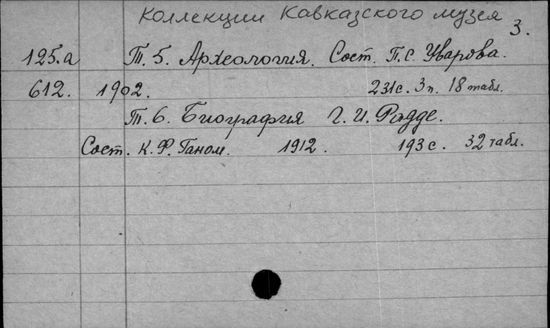 Коллекции Кавказского музея 3.
125.а Т. 5. Археология. Сост. П.С. Уварова.
612. 1902. 231с. 3 п. 18 табл.
Т. 6. Биография Г. И. Радде.
Сост. К. Ф. Ганом. 1912. 193 с. 32 табл.